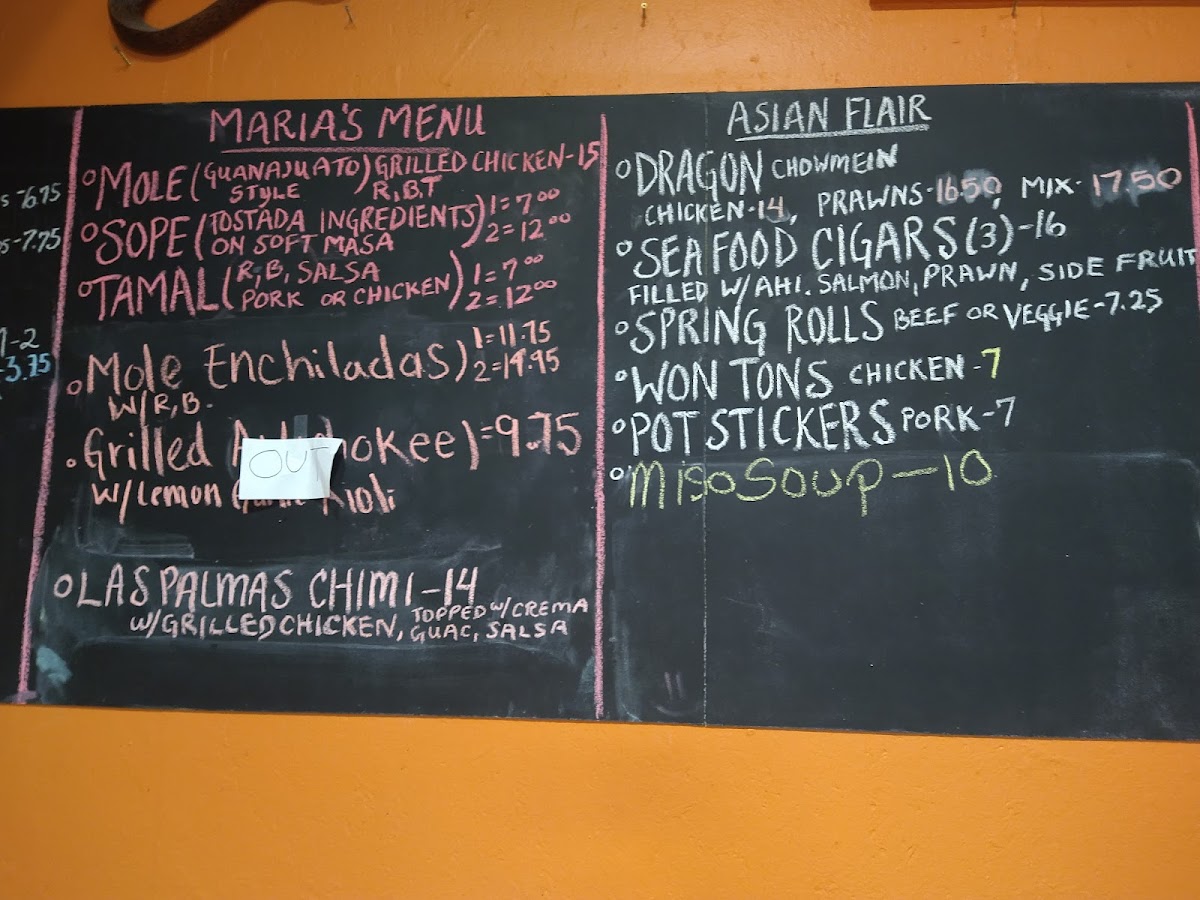 s -6.95
s -7.75
-2
-3.75
MARIA'S MENU
MOLE (GUANAJUATO STYLE) GRILLED CHICKEN-15
R,B,T
SOPE (TOSTADA INGREDIENTS ON SOFT MASA) 1=7.00
2=12.00
TAMAL (R,B, SALSA PORK OR CHICKEN) 1=7.00
2=12.00
Mole Enchiladas) 1=11.75
W/R,B. 2=14.95
Grilled OUT hokee)=9.75
W/Lemon Aioli
LAS PALMAS CHIMI-14
W/GRILLED CHICKEN, TOPPED W/CREMA
GUAC, SALSA
ASIAN FLAIR
DRAGON CHOWMEIN
CHICKEN-14, PRAWNS-16.50, MIX-17.50
SEAFOOD CIGARS (3)-16
FILLED W/AHI. SALMON, PRAWN, SIDE FRUIT
SPRING ROLLS BEEF OR VEGGIE-7.25
WON TONS CHICKEN-7
POT STICKERS PORK-7
Miso Soup-10